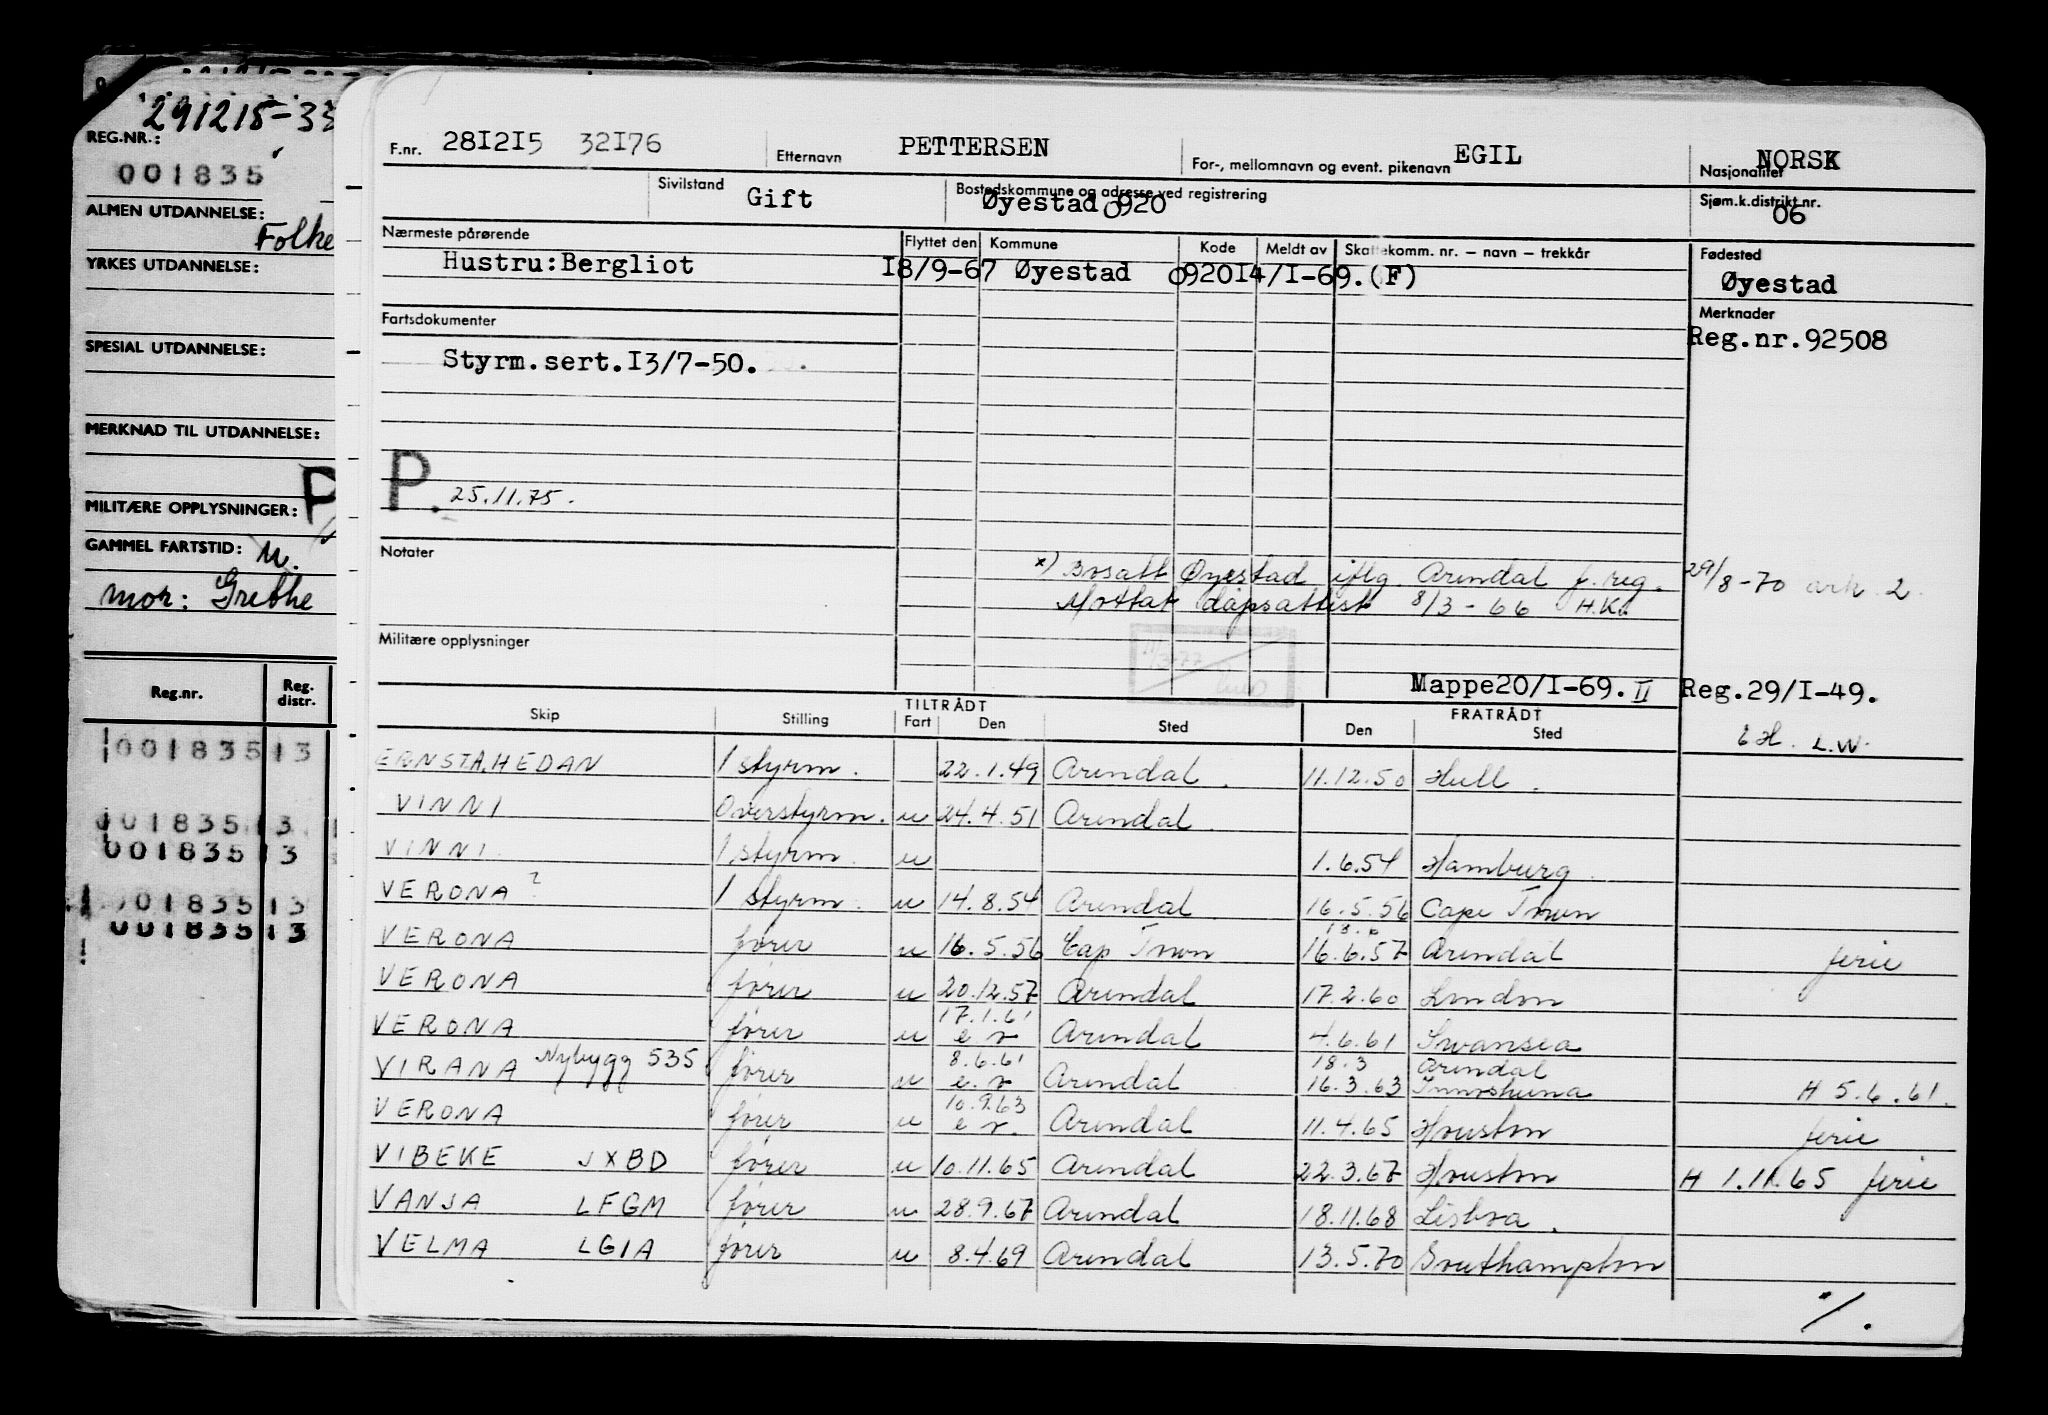 291215-33
REG.NR.:
001835
ALMEN UTDANNELSE:
Folke
YRKES UTDANNELSE:
SPESIAL UTDANNELSE:
MERKNAD TIL UTDANNELSE:
P
MILITÆRE OPPLYSNINGER:
GAMMEL FARTSTID: u.
mor: Grethe
Reg.nr. Reg. distr.
001835 13
001835 13
001835 13
001835 13
001835 13
F.nr. 28I2I5 32I76 Etternavn PETTERSEN For-, mellomnavn og event. pikenavn EGIL Nasjonalitet NORSK
Sivilstand Gift Bostedskommune og adresse ved registrering Øyestad 0920 Sjøm.k.distrikt nr. 06
Nærmeste pårørende Flyttet den Kommune Kode Meldt av Skattekomm. nr. – navn – trekkår Fødested
Hustru:Bergliot I8/9-67 Øyestad 0920 I4/I-69.(F) Øyestad
Fartsdokumenter Merknader
Styrm.sert.I3/7-50. Reg.nr.92508
P. 25.11.75.
Notater
x) Bosatt Øyestad iflg. Arendal f.reg. 29/8-70 ark 2.
Mottat dåpsattest 8/3-66 H.K.
Militære opplysninger
Mappe20/I-69. II Reg.29/I-49.
TILTRÅDT FRATRÅDT
Skip Stilling Fart Den Sted Den Sted
L.W.
ERNSTA.HEDAN 1 styrm. 22.1.49 Arendal. 11.12.50 Hull.
VINNI Overstyrm. u 24.4.51 Arendal.
VINNI. 1.styrm. u 1.6.54 Hamburg.
VERONA ? 1 styrm. u 14.8.54 Arendal 16.5.56 Cape Town
VERONA fører u 16.5.56 Cap Town 18.6 16.6.57 Arendal ferie
VERONA fører u 20.12.57 Arendal 17.2.60 London
VERONA fører u 17.1.61 e r Arendal 4.6.61 Swansea
VIRANA Nybygg 535 fører u 8.6.61 e.r Arendal 18.3 Arendal 16.3.63 H 5.6.61.
VERONA fører u 10.9.63 e r. Arendal 11.4.65 Houston ferie
VIBEKE JXBD fører u 10.11.65 Arendal 22.3.67 Houston H 1.11.65 ferie
VANJA LFGM fører u 28.9.67 Arendal 18.11.68 Lisboa.
VELMA LGIA fører u 8.4.69 Arendal 13.5.70 Southampton
./.